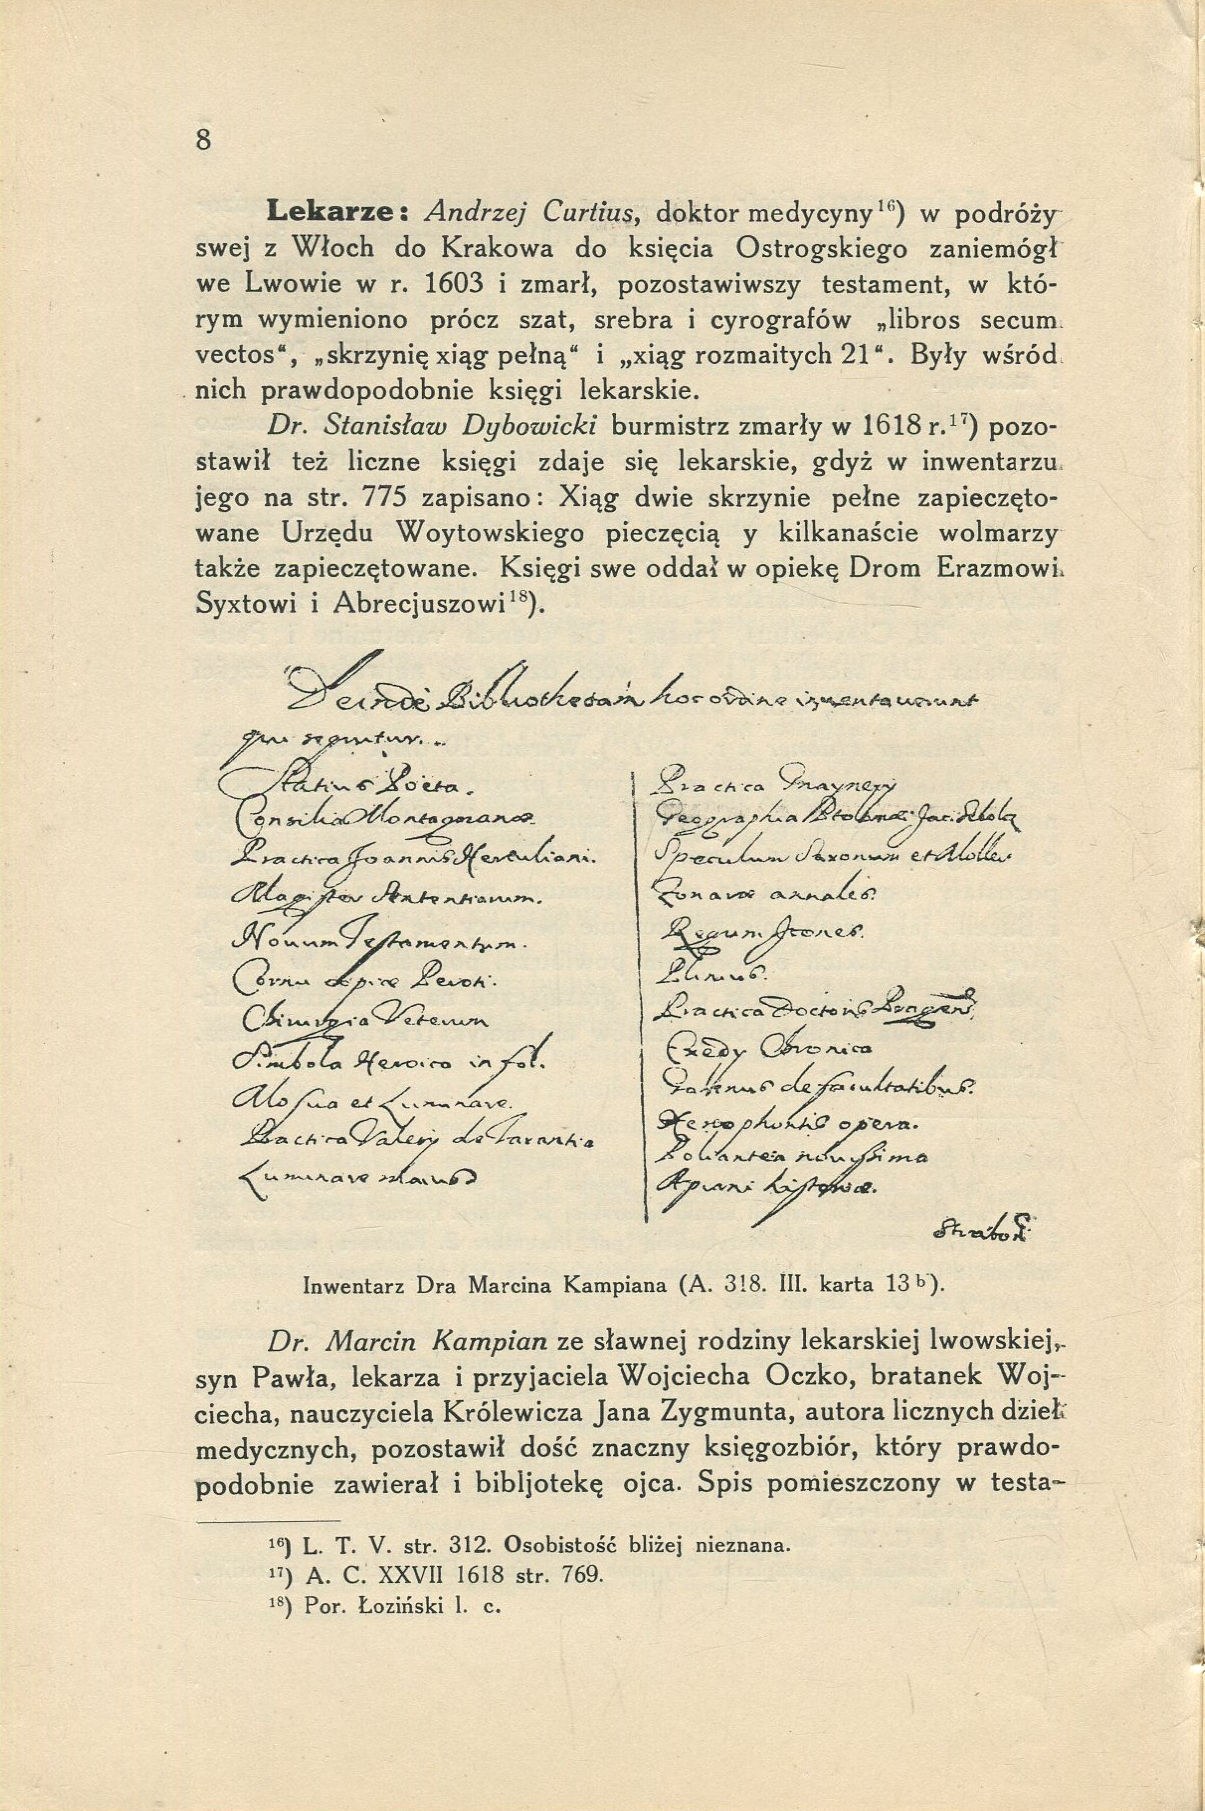 8
Lekarze: Andrzej Curtius, doktor medycyny¹⁶) w podróży
swej z Włoch do Krakowa do księcia Ostrogskiego zaniemógł
we Lwowie w r. 1603 i zmarł, pozostawiwszy testament, w któ-
rym wymieniono prócz szat, srebra i cyrografów „libros secum
vectos“, „skrzynię xiąg pełną“ i „xiąg rozmaitych 21“. Były wśród
nich prawdopodobnie księgi lekarskie.
Dr. Stanisław Dybowicki burmistrz zmarły w 1618 r.¹⁷) pozo-
stawił też liczne księgi zdaje się lekarskie, gdyż w inwentarzu
jego na str. 775 zapisano: Xiąg dwie skrzynie pełne zapieczęto-
wane Urzędu Woytowskiego pieczęcią y kilkanaście wolmarzy
także zapieczętowane. Księgi swe oddał w opiekę Drom Erazmowi
Syxtowi i Abrecjuszowi¹⁸).
Deinde Bibliothecam hoc ordine inventaverunt
qui sequitur.
Statius Poeta.
Consilia Montagnanae
Practica Joannis Herculiani.
Magister Sententiarum.
Novum Testamentum.
Cornu copiae Peroti.
Chirurgia Veterum
Simbola Heroico in fol.
Mosua et Luminare.
Practica Valery de Taranta
Luminare maius
Practica Gnaynery
Geographia Ptolomei
Speculum Saxonum et Moller
Zonarae annales.
Regum Icones.
Plinius.
Practica Doctoris
Chronica
Galenus de facultatibus.
Xenophontis opera.
Poliantea novissima
Apiani historiae.
Strabon
Inwentarz Dra Marcina Kampiana (A. 318. III. karta 13 ᵇ).
Dr. Marcin Kampian ze sławnej rodziny lekarskiej lwowskiej,
syn Pawła, lekarza i przyjaciela Wojciecha Oczko, bratanek Woj-
ciecha, nauczyciela Królewicza Jana Zygmunta, autora licznych dzieł
medycznych, pozostawił dość znaczny księgozbiór, który prawdo-
podobnie zawierał i bibljotekę ojca. Spis pomieszczony w testa-
¹⁶) L. T. V. str. 312. Osobistość bliżej nieznana.
¹⁷) A. C. XXVII 1618 str. 769.
¹⁸) Por. Łoziński l. c.